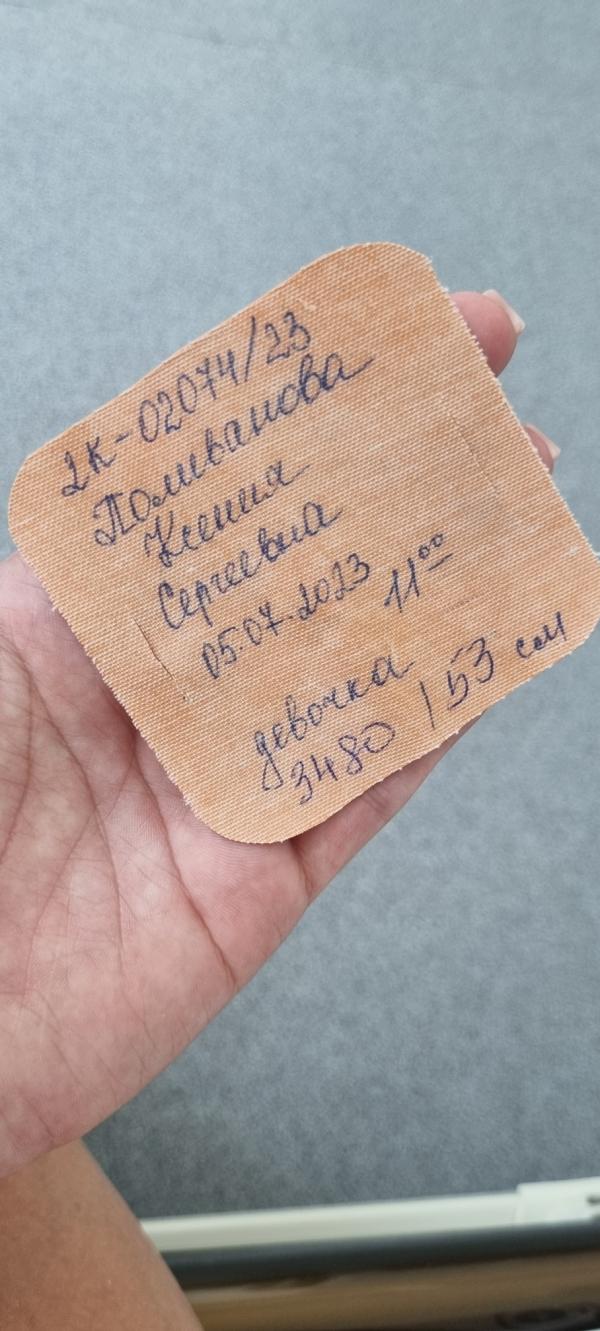 2К-02074/23
Поливанова
Ксения
Сергеевна
05.07.2023 11⁰⁰
девочка
3480 / 53 см